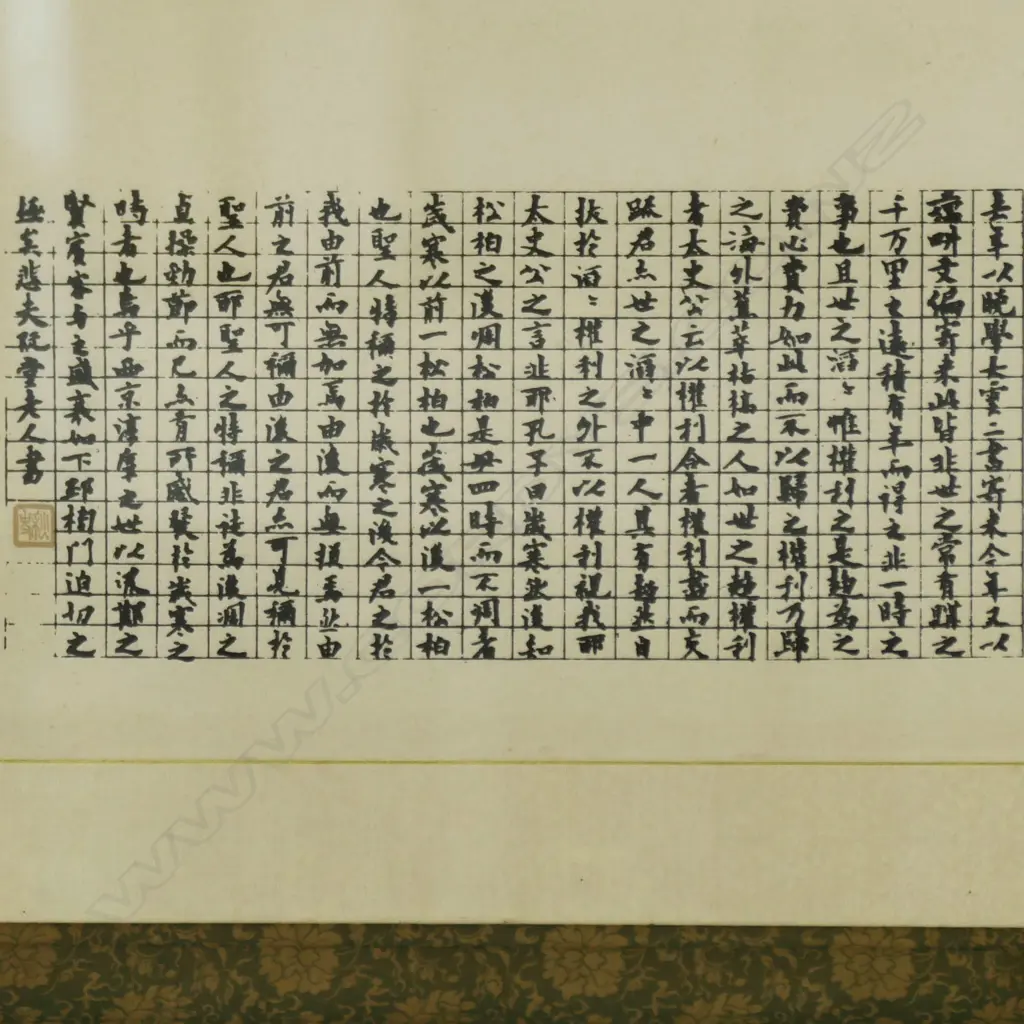 去年以晚學大雲二書寄來今年又以
藕畊文編寄來此皆非世之常有購之
千万里之遠積有年而得之非一時之
事也且世之滔〻惟權利之是趨爲之
費心費力如此而不以歸之權利乃歸
之海外蕉萃枯槁之人如世之趨權利
者太史公云以權利合者權利盡而交
疎君亦世之滔〻中一人其有超然自
拔於滔〻權利之外不以權利視我耶
太史公之言非耶孔子曰歲寒然後知
松柏之後凋松柏是毋四時而不凋者
歲寒以前一松柏也歲寒以後一松柏
也聖人特稱之於歲寒之後今君之於
我由前而無加焉由後而無損焉然由
前之君無可稱由後之君亦可見稱於
聖人也耶聖人之特稱非徒爲後凋之
貞操勁節而已亦有所感發於歲寒之
時者也烏乎西京淳厚之世以汲鄭之
賢賓客與之盛衰如下邳榜門迫切之
極矣悲夫阮堂老人書